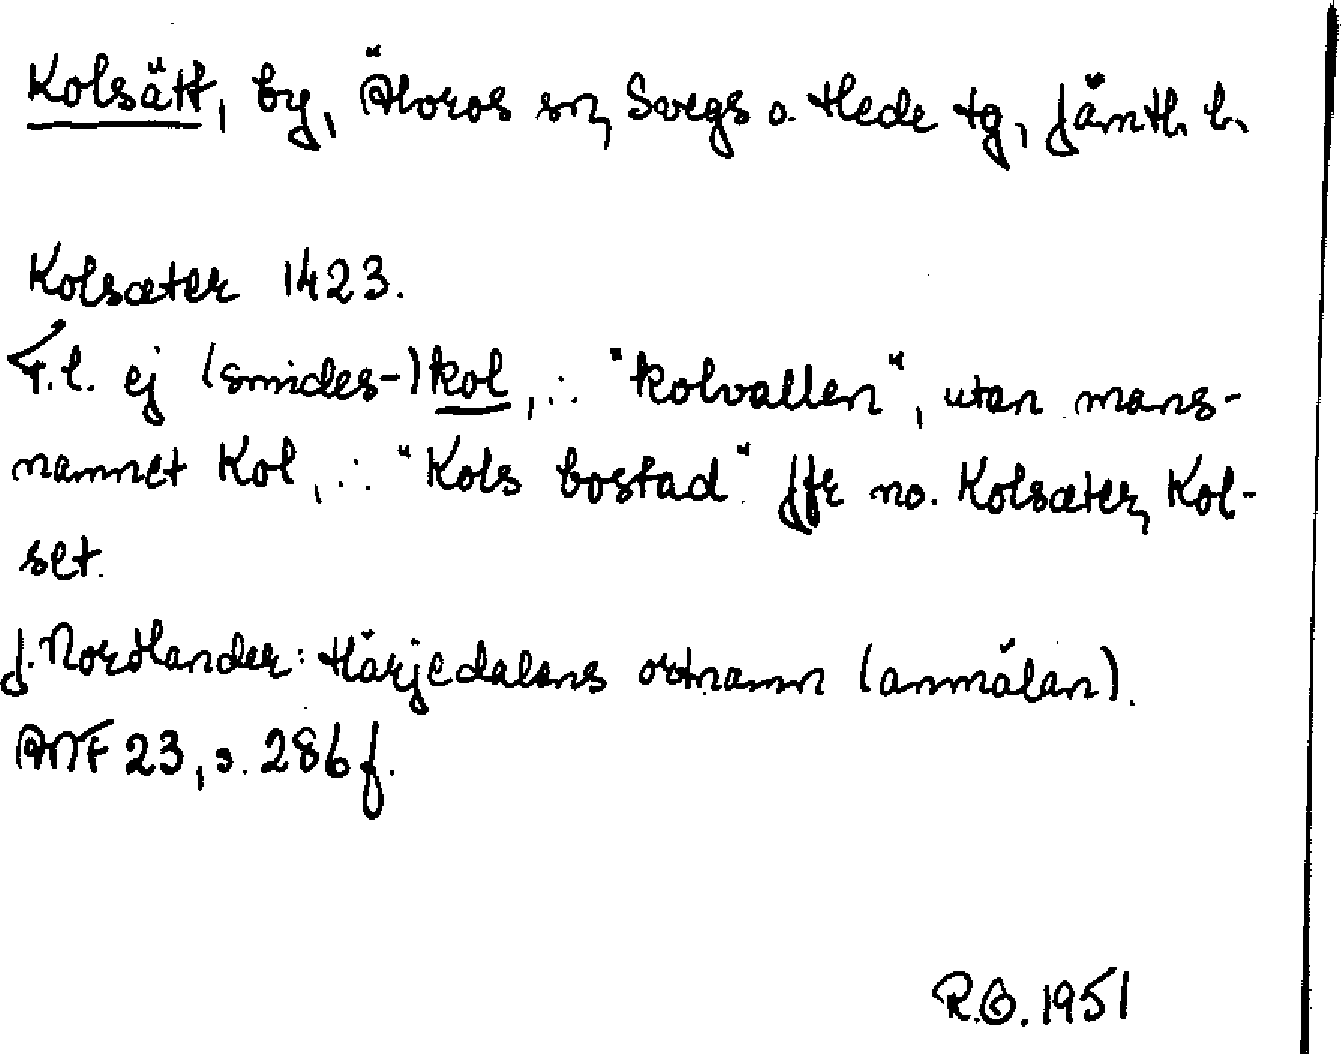 Kolsätt, by, Älvros sn, Svegs o. Hede tg, Jämtl. l.
Kolsæter 1423.
F.l. ej (smides-)kol, ∴ "kolvallen", utan mans-
namnet Kol, ∴ "Kols bostad" Jfr no. Kolsæter, Kol-
set.
J. Nordlander: Härjedalens ortnamn (anmälan).
ANF 23, s. 286 f.
R.O. 1951